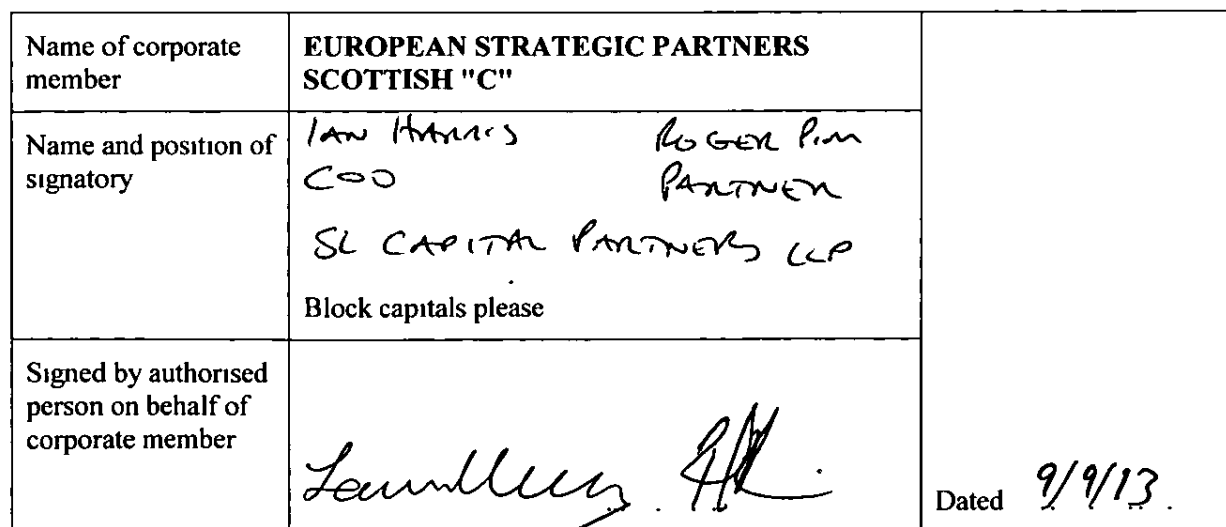 Name of corporate
member
EUROPEAN STRATEGIC PARTNERS
SCOTTISH "C"
Name and position of
signatory
IAN HARRIS ROGER PIM
COO PARTNER
SL CAPITAL PARTNERS LLP
Block capitals please
Signed by authorised
person on behalf of
corporate member
Dated 9/9/13.